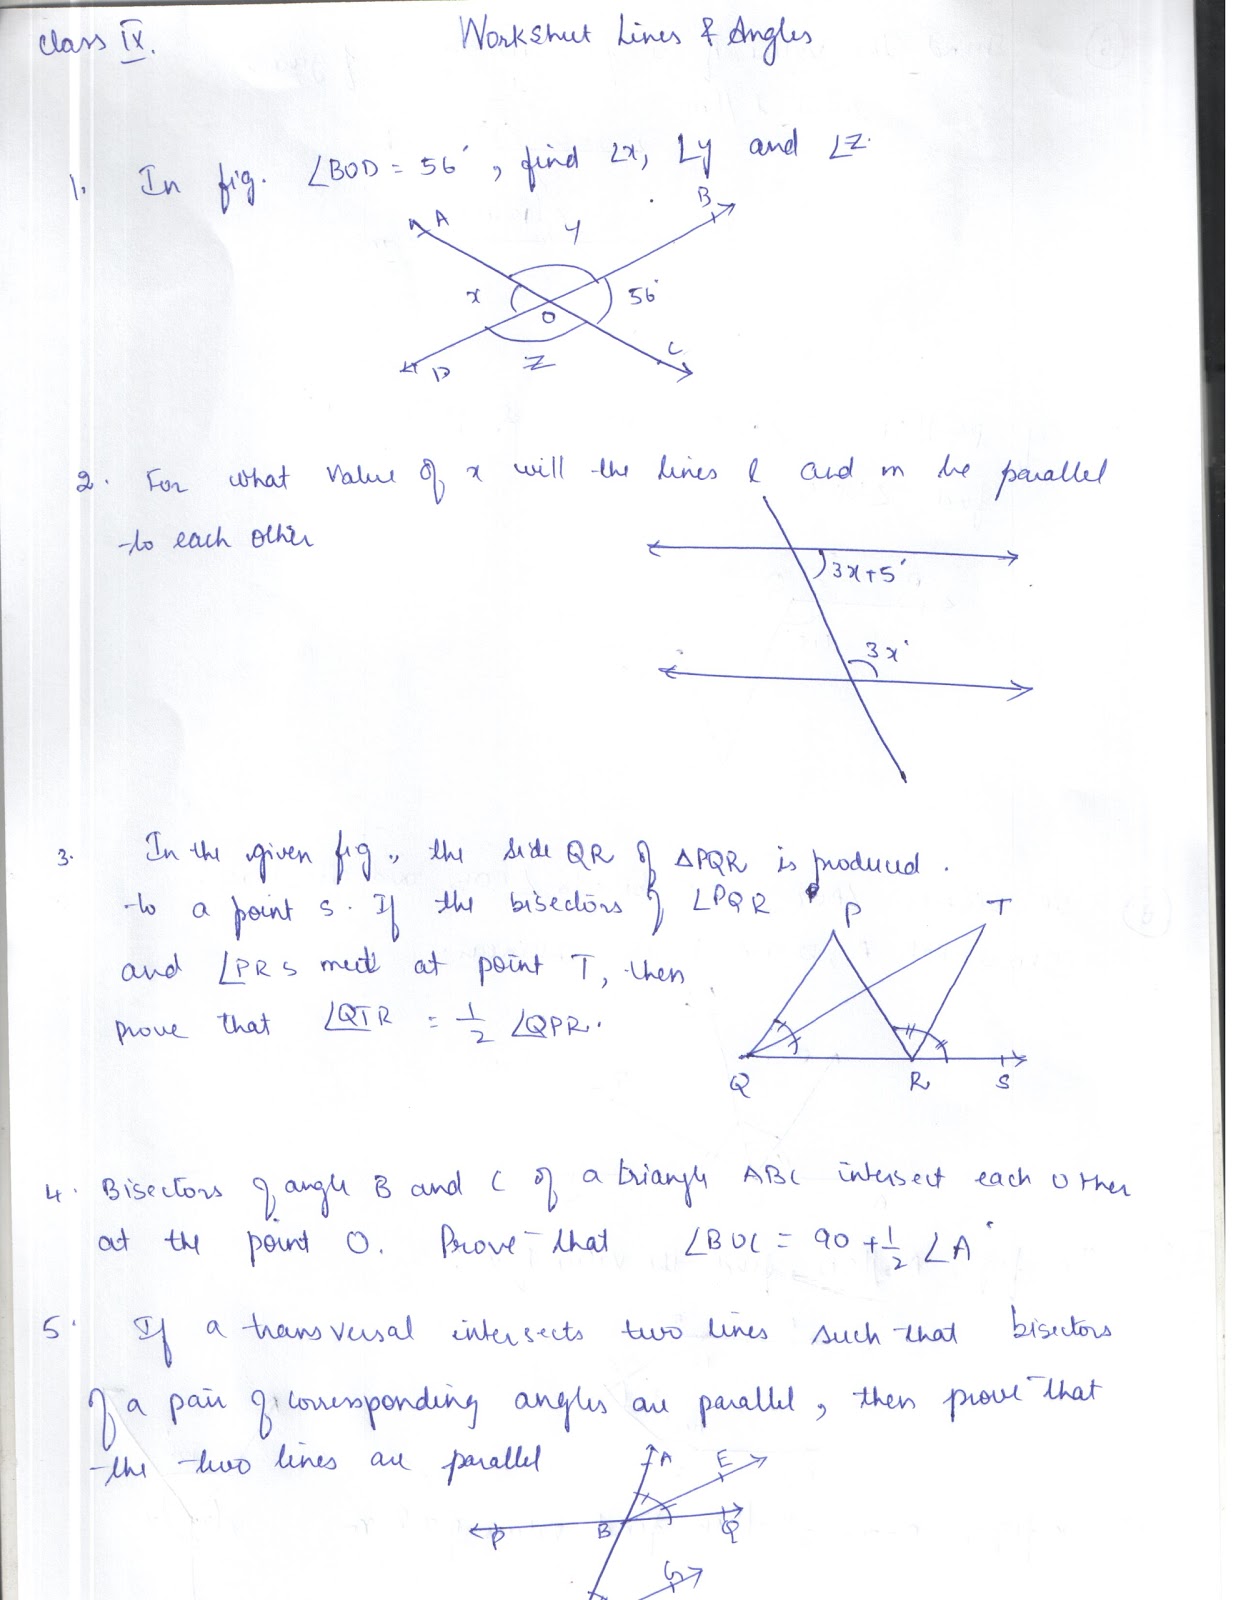 Class IX.
Worksheet Lines & Angles
1. In fig. ∠BOD = 56°, find ∠x, ∠y and ∠z.
A
B
y
x
56°
O
z
D
C
2. For what value of x will the lines l and m be parallel
to each other
3x+5°
3x°
3. In the given fig, the side QR of ΔPQR is produced.
to a point S. If the bisectors of ∠PQR
and ∠PRS meet at point T, then
prove that ∠QTR = 1/2 ∠QPR.
P
T
Q
R
S
4. Bisectors of angle B and C of a triangle ABC intersect each other
at the point O. Prove that ∠BOC = 90 + 1/2 ∠A°
5. If a transversal intersects two lines such that bisectors
of a pair of corresponding angles are parallel, then prove that
the two lines are parallel
A
E
P
B
Q
G